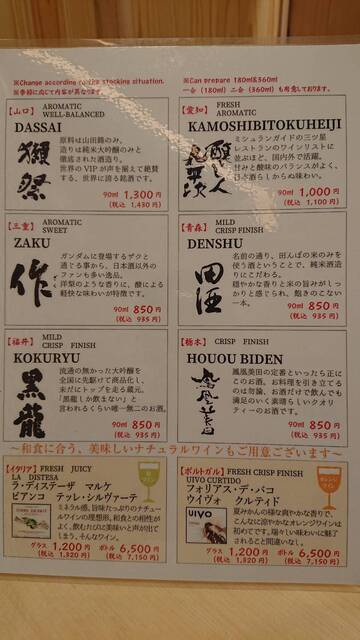 ※Change according to the stocking situation.
※季節に応じて内容が異なります。
※Can prepare 180ml&360ml
一合(180ml)二合(360ml)も用意しております。
【山口】 AROMATIC
WELL-BALANCED
DASSAI
獺祭
原料は山田錦のみ、
造りは純米大吟醸のみと
徹底された酒造り。
世界のVIPが声を揃えて絶賛
する、世界に誇る銘酒です。
90ml 1,300円
(税込 1,430円)
【愛知】 FRESH
AROMATIC
KAMOSHIBITOKUHEIJI
醸し人九平次
ミシュランガイドの三ツ星
レストランのワインリストに
並ぶほど、国内外で活躍。
甘みと酸味のバランスがよく、
日本酒らしからぬ味わい。
90ml 1,000円
(税込 1,100円)
【三重】 AROMATIC
SWEET
ZAKU
作
ガンダムに登場するザクと
通じる事から、日本酒以外の
ファンも多い逸品。
洋梨のような香りに、酸による
軽快な味わいが特徴です。
90ml 850円
(税込 935円)
【青森】 MILD
CRISP FINISH
DENSHU
田酒
名前の通り、田んぼの米のみを
使う酒ということで、純米酒造
りにこだわる。
穏やかな香りと米の旨みがしっ
かりと感じられ、飽きのこない
一本。
90ml 850円
(税込 935円)
【福井】 MILD
CRISP FINISH
KOKURYU
黒龍
流通の無かった大吟醸を
全国に先駆けて商品化し、
未だトップを走る蔵元。
「黒龍しか飲まない」と
言われるくらい唯一無二のお酒。
90ml 850円
(税込 935円)
【栃木】 CRISP FINISH
HOUOU BIDEN
鳳凰美田
鳳凰美田の定番といったら正に
このお酒。お料理を引き立てる
のは勿論、お酒だけで飲んでも
満足のいく素晴らしいクオリ
ティーのお酒です。
90ml 850円
(税込 935円)
～和食に合う、美味しいナチュラルワインもご用意ございます～
【イタリア】FRESH JUICY
LA DISTESA
ラ・ディステーザ マルケ
ビアンコ テッレ・シルヴァーテ
ミネラル感、旨味たっぷりのナチュー
ルワインの理想形。和食との相性が
よく、飲むたびに美味いと声が出て
しまう、そんなワイン。
グラス 1,200円 ボトル 6,500円
(税込 1,320円) (税込 7,150円)
【ポルトガル】FRESH CRISP FINISH
UIVO CURTIDO
フォリアス・デ・バコ
ウイヴォ クルティド
UIVO
オレンジ
ワイン
夏みかんの様な爽やかな香りで、
こんなに涼やかなオレンジワインは
初めてです。瑞々しい味わいに魅了
されること間違いなし。
グラス 1,200円 ボトル 6,500円
(税込 1,320円) (税込 7,150円)